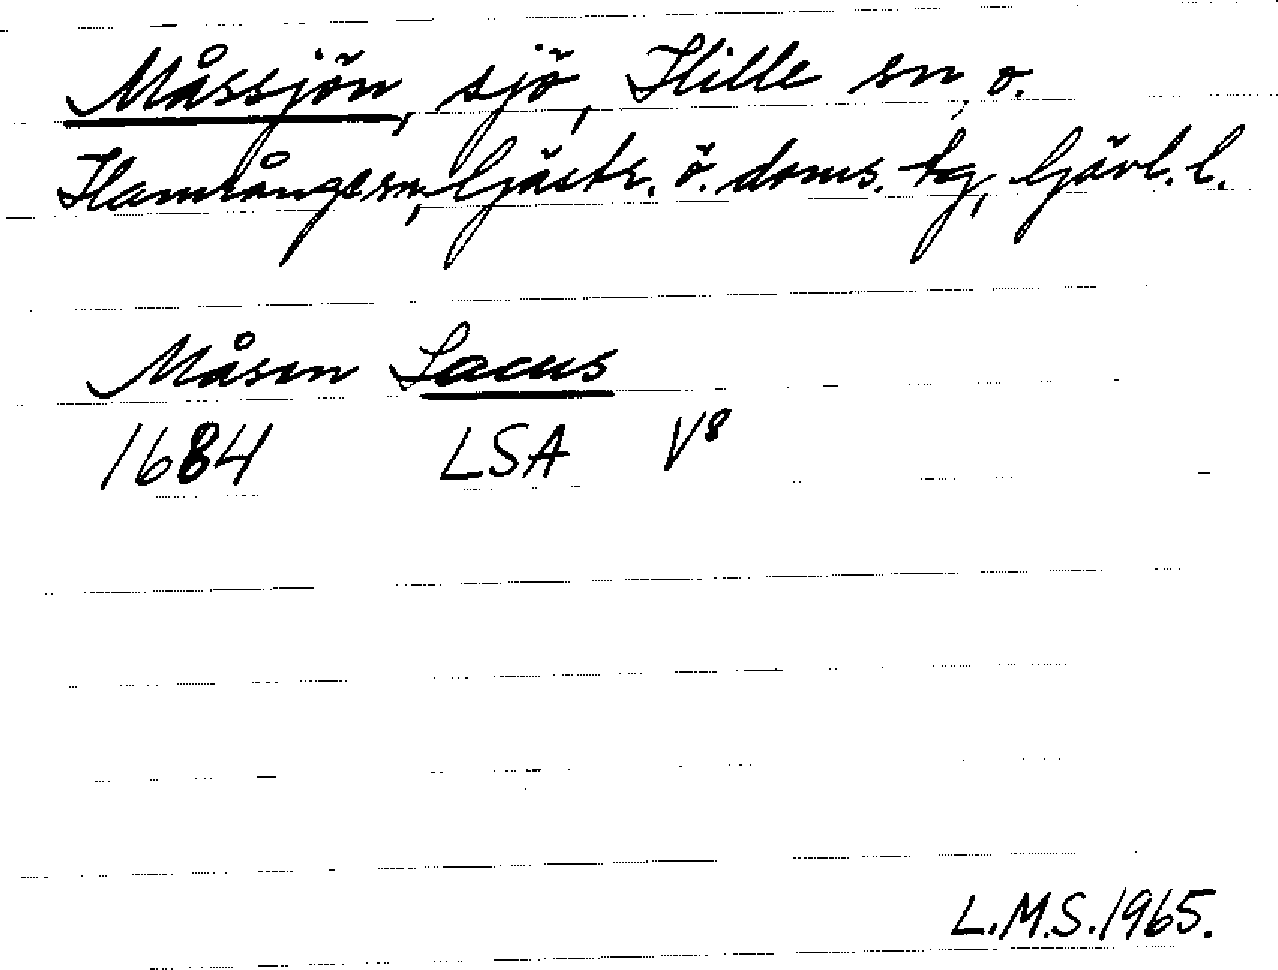 Måssjön, sjö, Hille sn, o.
Hamrånge sn, Gästr. ö. doms. tg, Gävl. l.
Måsen Lacus
1684 LSA V8
L.M.S. 1965.